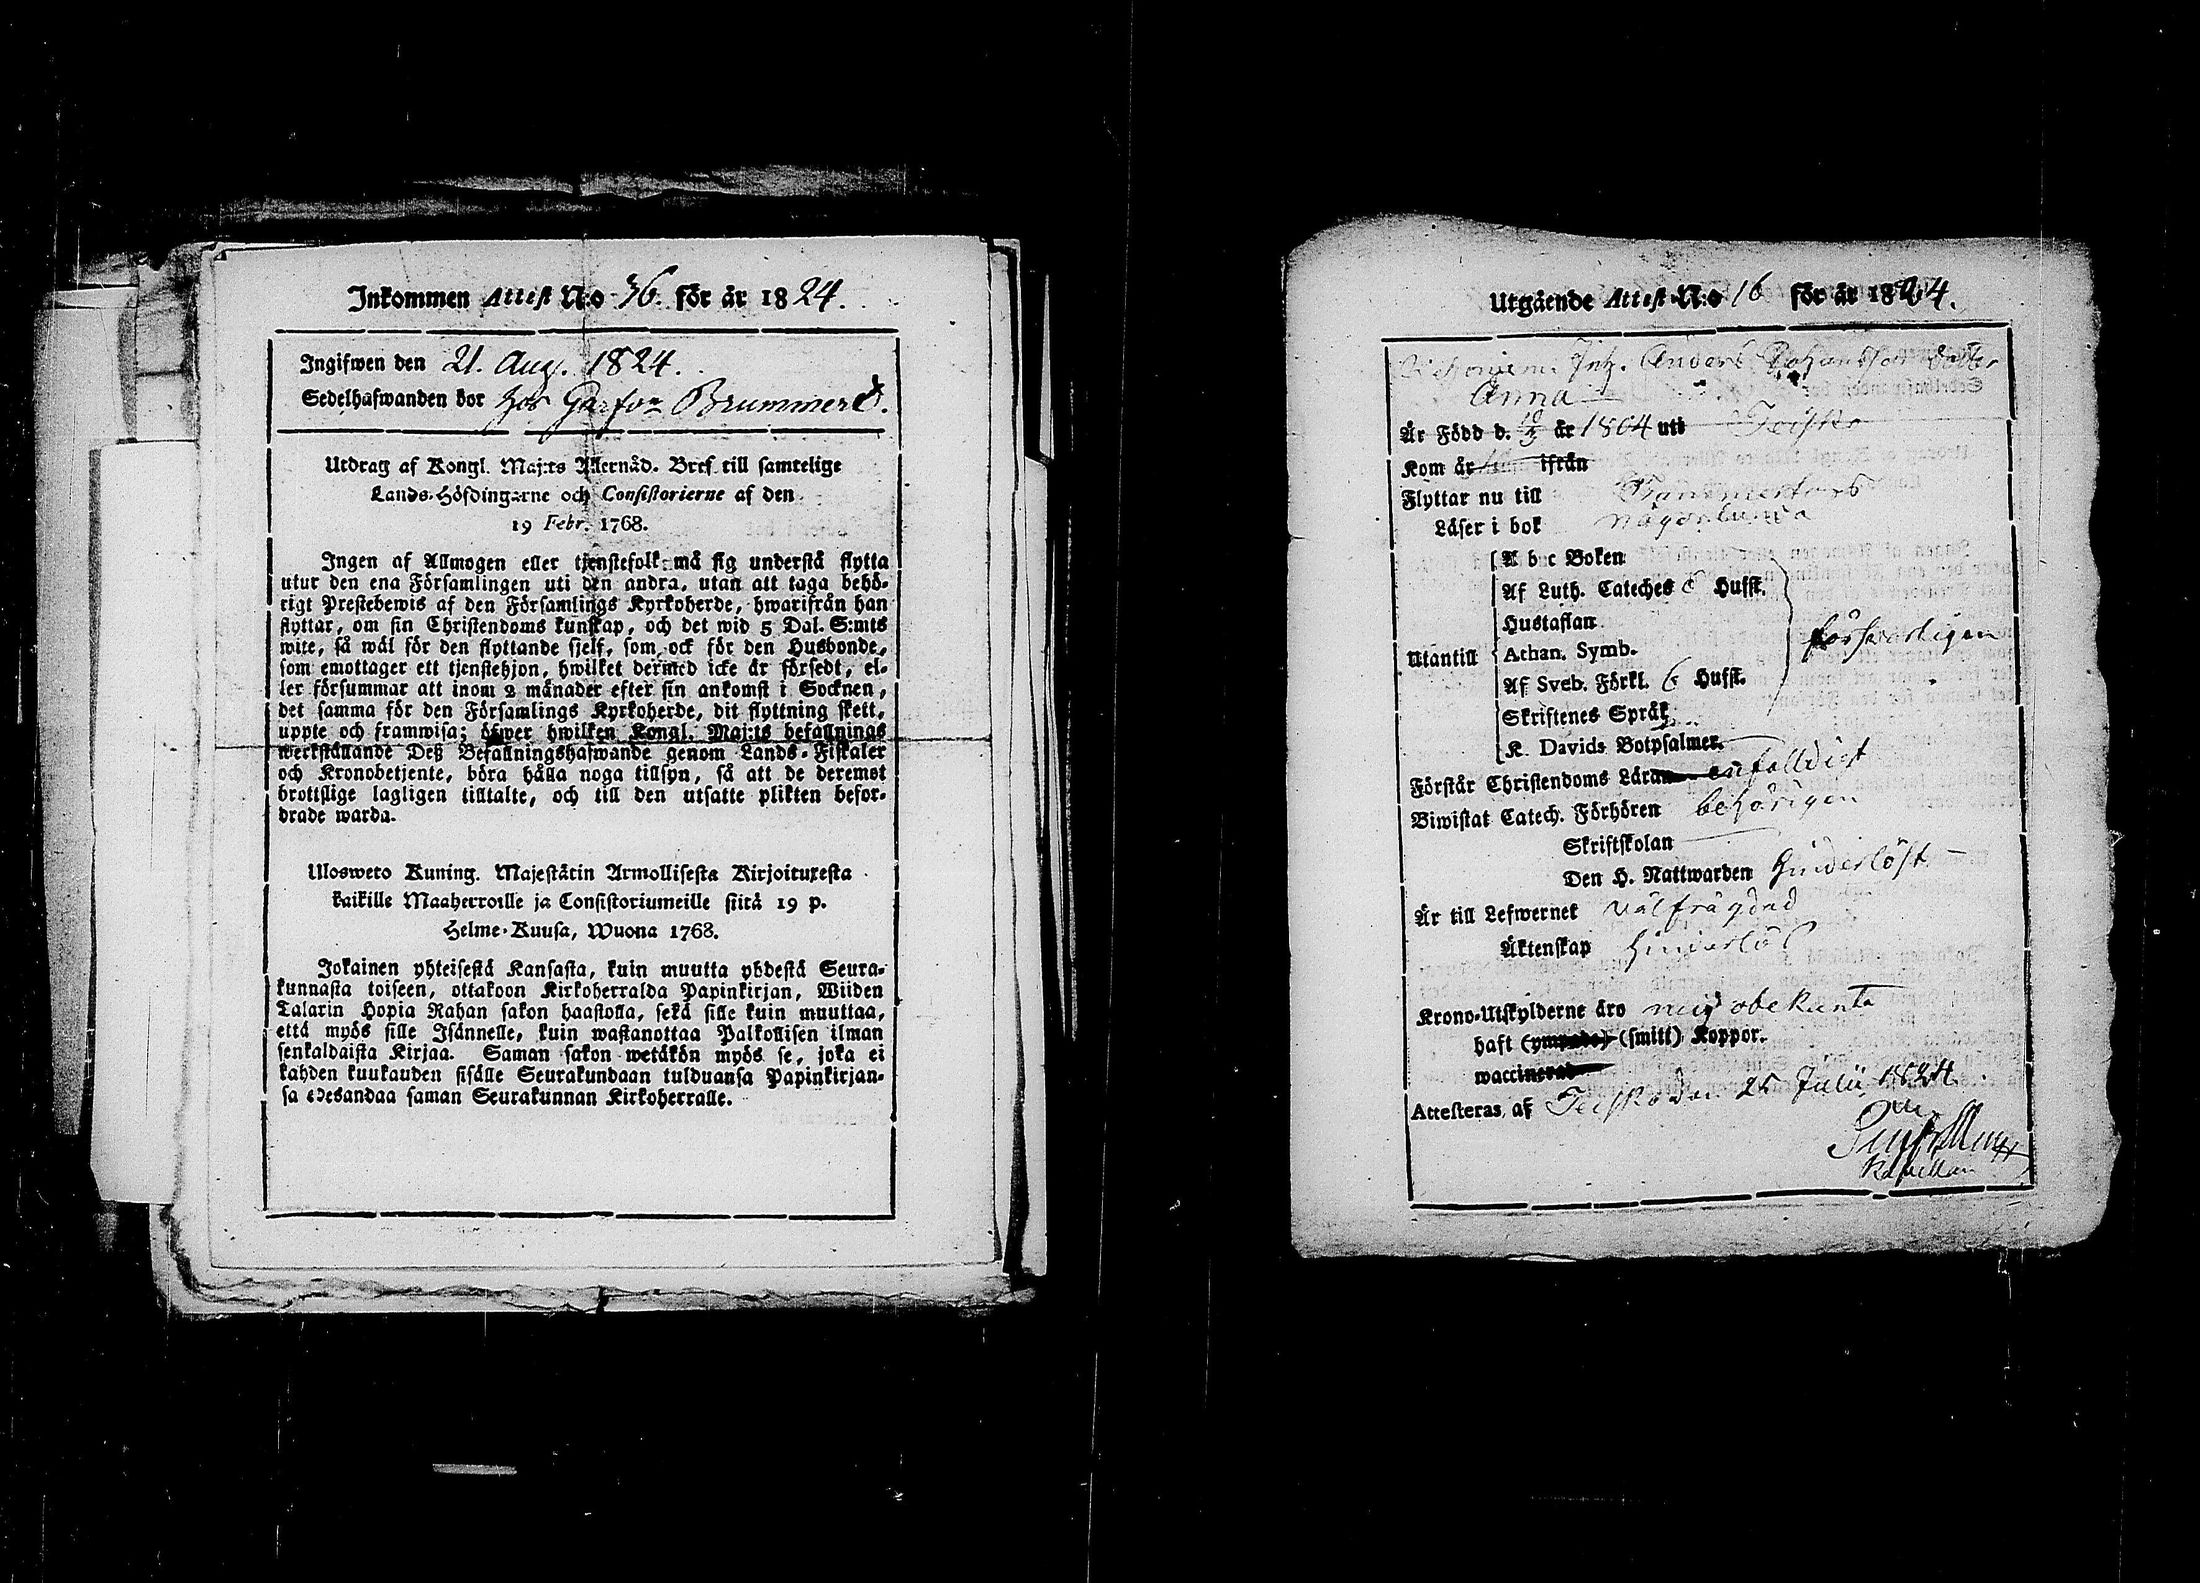 Inkommen Attest N:o 36. för år 1824.
Ingifwen den 21. Aug. 1824.
Sedelhafwanden bor hos Garfvn Brummer
Utdrag af Kongl. Maj:ts Allernåd. Bref till samtelige
Lands-Höfdingarne och Consistorierne af den
19 Febr. 1768.
Ingen af Allmogen eller tjenstefolk må sig understå flytta
utur den ena Församlingen uti den andra, utan att taga behö-
rigt Prestebewis af den Församlings Kyrkoherde, hwarifrån han
flyttar, om sin Christendoms kunskap, och det wid 5 Dal. S:mts
wite, så wäl för den flyttande sjelf, som ock för den Husbonde,
som emottager ett tjenstehjon, hwilket dermed icke är försedt, el-
ler försummar att inom 2 månader efter sin ankomst i Socknen,
det samma för den Församlings Kyrkoherde, dit flyttning skett,
uppte och framwisa; öfwer hwilken Kongl. Maj:ts befallnings
werkställande Deß Befallningshafwande genom Lands-Fiskaler
och Kronobetjente, böra hålla noga tillsyn, så att de deremot
brottslige lagligen tilltalte, och till den utsatte plikten befor-
drade warda.
Ulosweto Kuning. Majestätin Armollisesta Kirjoituxesta
kaikille Maaherroille ja Consistoriumeille siitä 19 p.
Helme-Kuusa, Wuona 1768.
Jokainen yhteisestä Kansasta, kuin muutta yhdestä Seura-
kunnasta toiseen, ottakoon Kirkoherralda Papinkirjan, Wiiden
Talarin Hopia Rahan sakon haastolla, sekä sille kuin muuttaa,
että myös sille Isännelle, kuin wastanottaa Palkollisen ilman
senkaldaista Kirjaa. Saman sakon wetäkön myös se, joka ei
kahden kuukauden sisälle Seurakundaan tulduansa Papinkirjan-
sa edesandaa saman Seurakunnan Kirkoherralle.
Utgående Attest N:o 16 för år 1824.
Inh. Anders Johansson dotter
Anna
Är Född d. år 1804 uti Teisko
Kom år ifrån
Flyttar nu till Tammerfors
Läser i bok någorlunda
Utantill
A b c Boken
Af Luth. Cateches 6 Hufst.
Hustaflan
Athan. Symb.
Af Sveb. Förkl. 6 Hufst.
Skriftenes Språk
K. Davids Botpsalmer.
försvarligen
Förstår Christendoms Läran enfalldigt
Biwistat Catech. Förhören behörigen
Skriftskolan
Den H. Nattwarden hinderlöst
Är till Lefwernet välfrägdad
Äktenskap hinderlös
Krono-Utskylderne äro mig obekanta
haft (ympade) (smitt) Koppor.
waccinerad
Attesteras af Teisko den 25 Julii 1824.
Kapellan